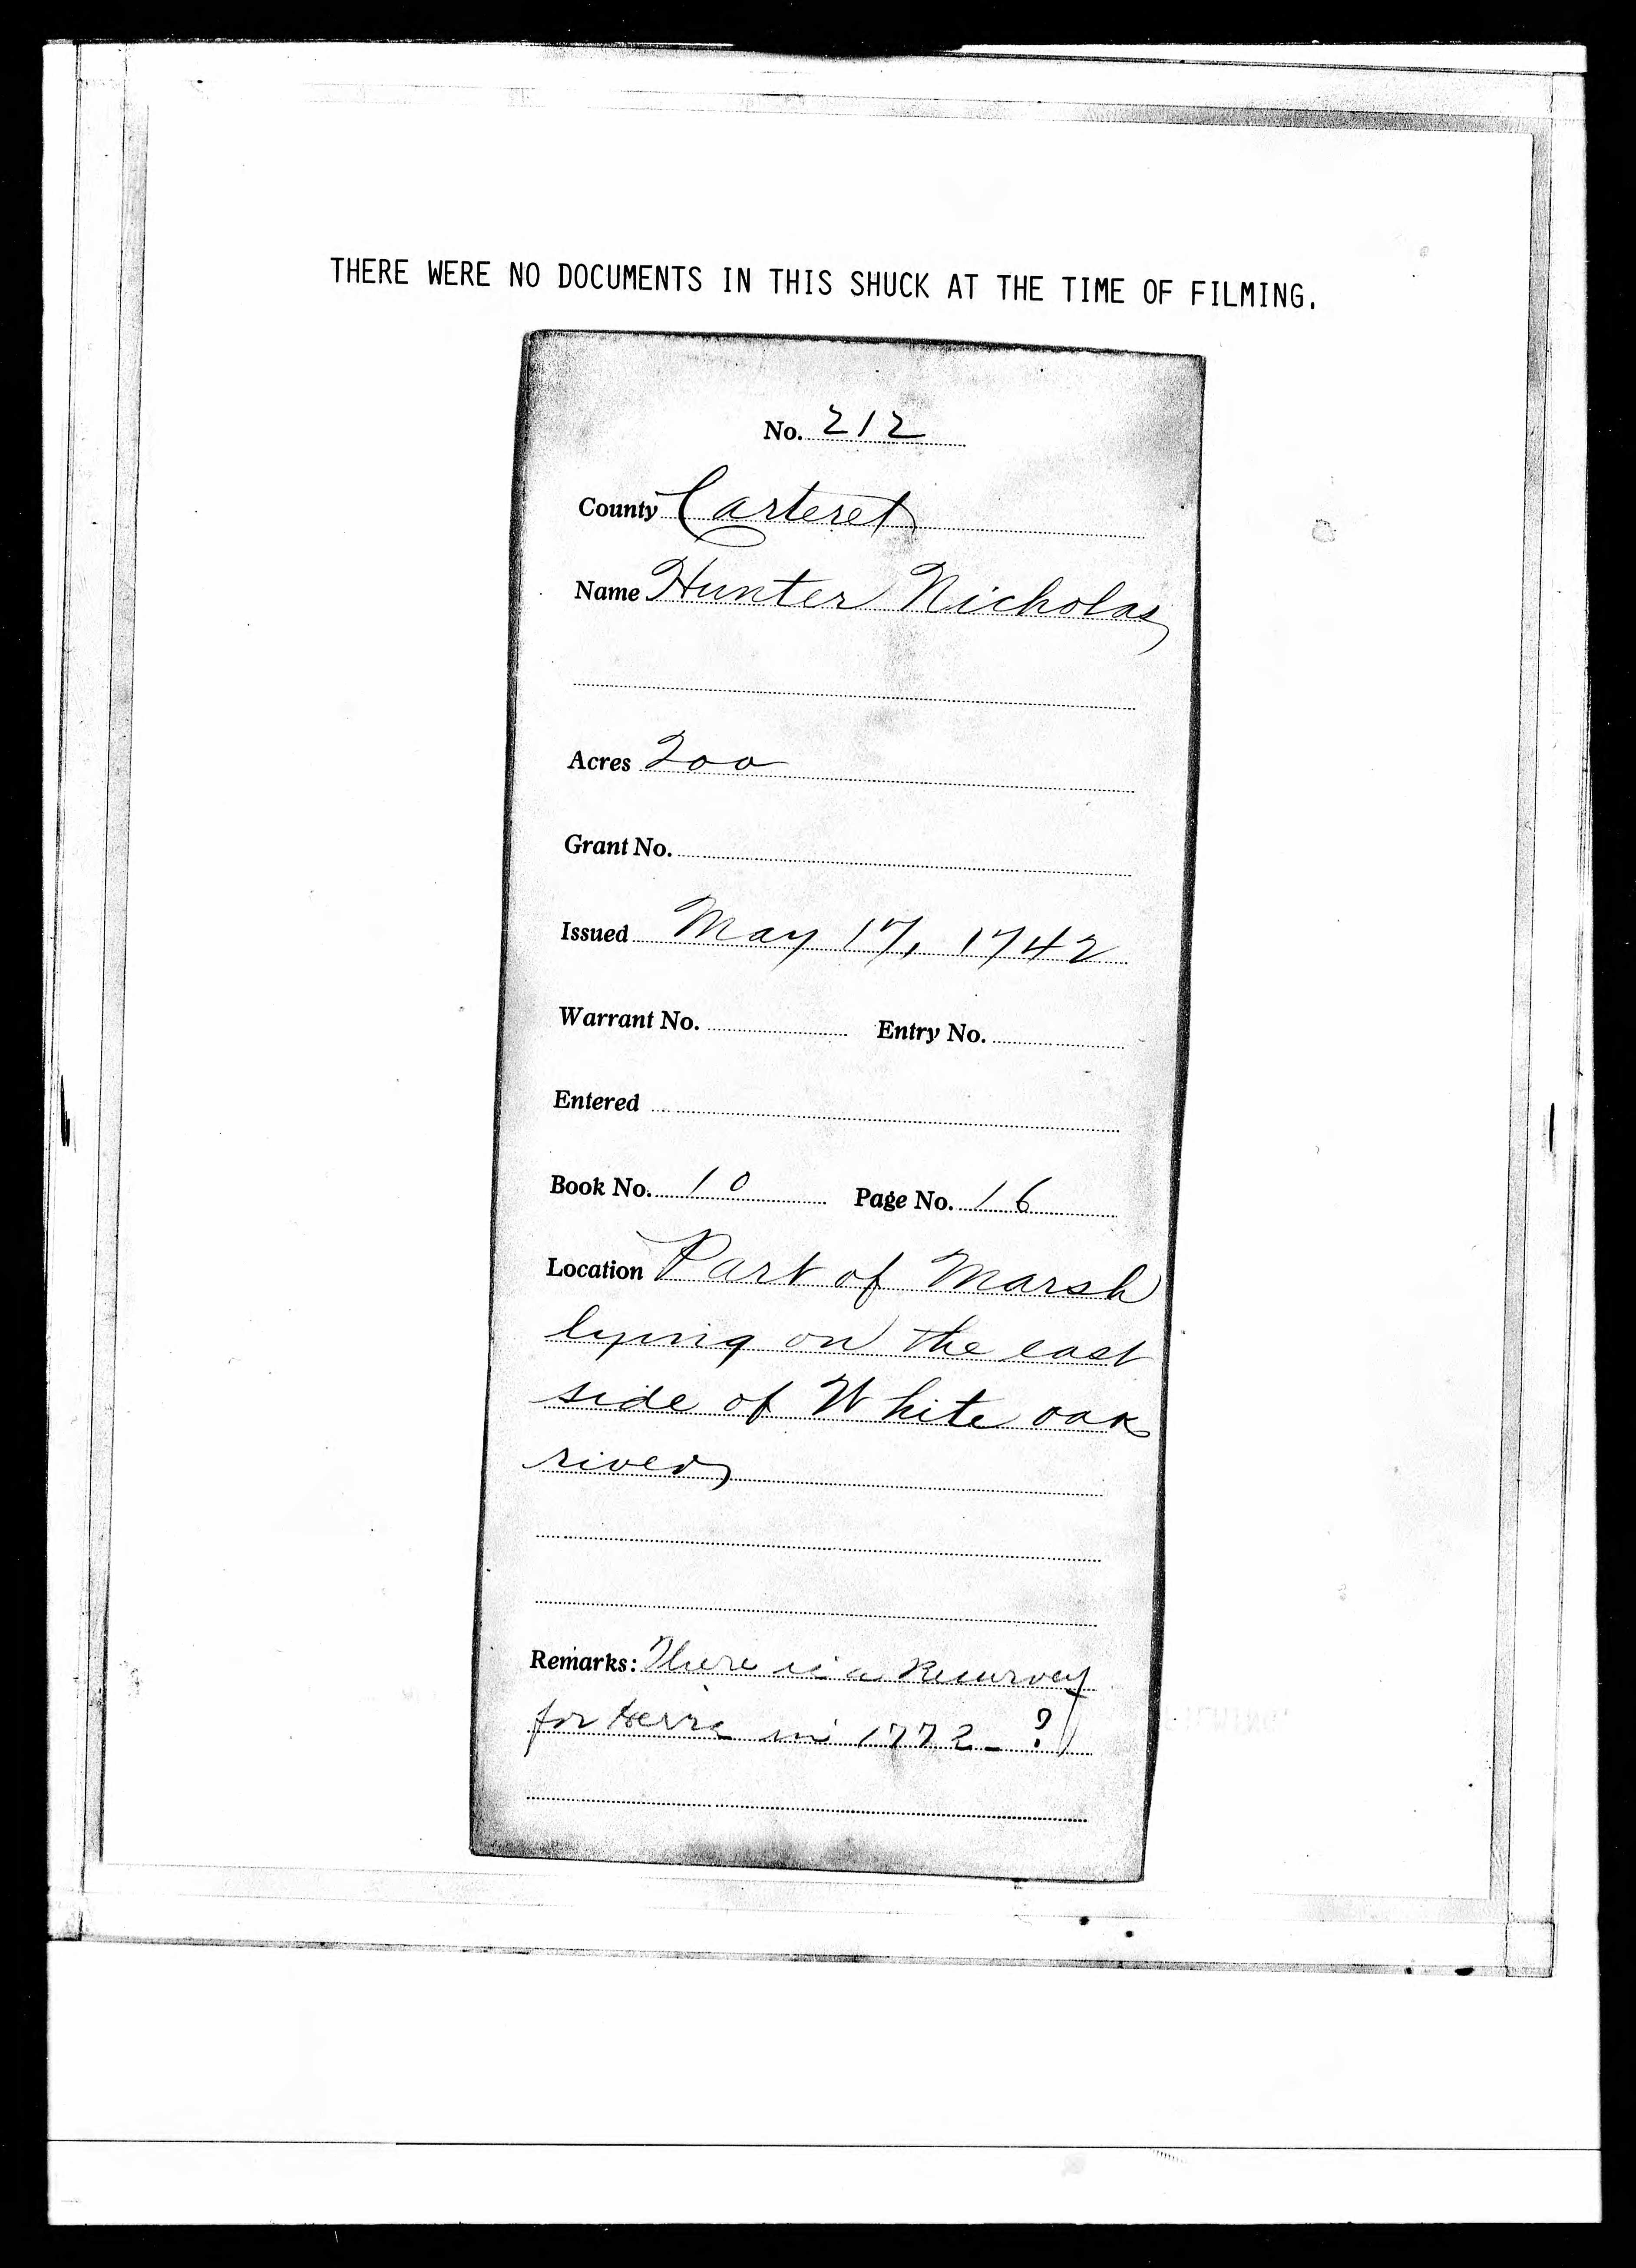 THERE WERE NO DOCUMENTS IN THIS SHUCK AT THE TIME OF FILMING.
No. 212
County Carteret
Name Hunter Nicholas
Acres 200
Grant No.
Issued May 17, 1742
Warrant No. Entry No.
Entered
Book No. 10 Page No. 16
Location Part of Marsh
lying on the east
side of White oak
river
Remarks: There is a Resurvey
for in 1772 - ?